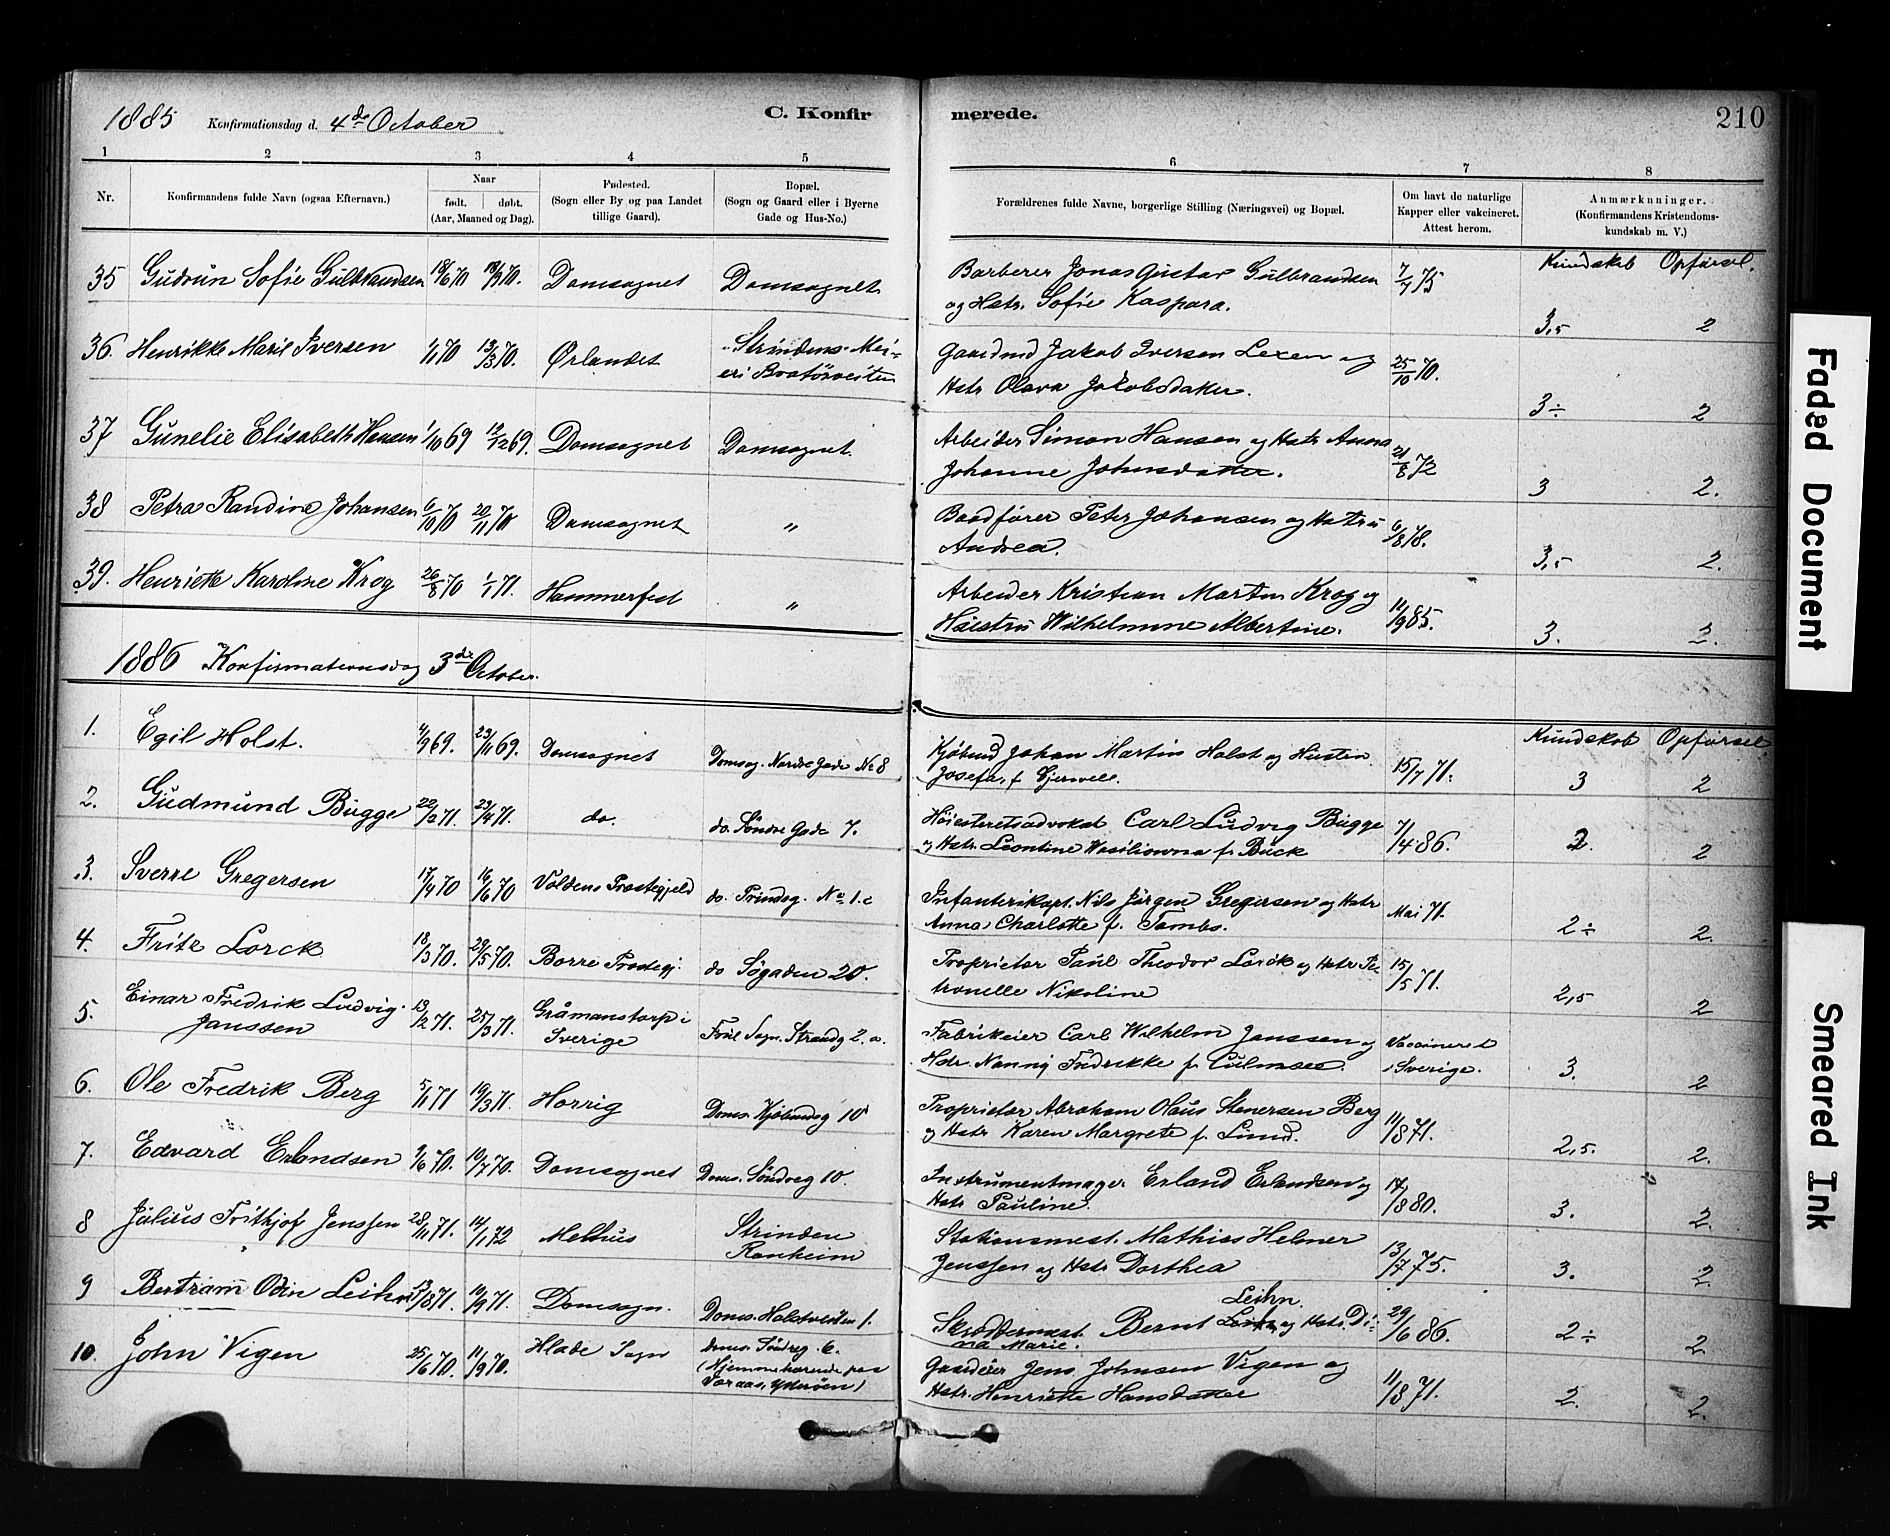 1885 Konfirmationsdag d. 4de October C. Konfirmerede. 210
1 2 3 4 5 6 7 8
Nr. Konfirmandens fulde Navn (ogsaa Efternavn.) Naar født. døbt. (Aar, Maaned og Dag). Fødested. (Sogn eller By og paa Landet tillige Gaard). Bopæl. (Sogn og Gaard eller i Byerne Gade og Hus-No.) Forældrenes fulde Navne, borgerlige Stilling (Næringsvei) og Bopæl. Om havt de naturlige Kapper eller vakcineret. Attest herom. Anmærknninger. (Konfirmandens Kristendomskundskab m. V.)
Kundskab Opførsel.
35 Gudrun Sofie Gulbrandsen 18/6 70 Domsognet Domsognet Barberer Jonas Gustav Gulbrandsen
og Hstr. Sofie Kaspara. 7/7 75 3,5 2
36. Henrikke Marie Iversen 1/1 70 13/3 70. Ørlandet Strindens Mei-
eri Gaardmd Jakob Iversen Lexen og
Hstr Olava Jakobsdatter. 25/10 70. 3÷ 2
37 Gunelie Elisabeth Hansen 1/10 69 12/12 69. Domsognet Domsognet. Arbeider Simon Hansen og Hstr Anna
Johanne Johnsdatter. 21/8 72 3 2.
38 Petra Randine Johansen 6/10 70 20/11 70 Domsognet " Baadfører Peter Johansen og Hstru
Andrea. 6/8 78. 3,5 2.
39. Henriette Karoline Krog 26/8 70 1/1 71. Hammerfest " Arbeider Kristian Martin Krog og
Høistru Wilhelmine Albertine. 11/9 85. 3. 2.
1886 Konfirmationsdag 3de October.
Kundskab Opførsel.
1. Egil Holst. 4/9 69. 23/11 69. Domsognet Domsog. Nordre Gade No 8 Kjøbmd Johan Martin Holst og Hustru
Josefa, f. Gjerwell. 15/7 71. 3 2
2. Gudmund Bugge 22/2 71. 23/4 71. do. do. Søndre Gade 7. Høiesteretsadvokat Carl Ludvig Bugge
og Hstr. Leontine Wasiliowna f. Buck 7/4 86. 2. 2
3. Sverre Gregersen 17/4 70 16/6 70 Voldens Præstegjeld do. Prindsg. No 1.c Infanterikapt. Nils Jørgen Gregersen og Hstr
Anna Charlotte f. Tambs. Mai 71. 2÷ 2.
4. Fritz Lorck 18/3 70. 29/5 70. Borre Prestegj. do Søgaden 20. Proprietær Paul Theodor Lorck og Hstr Pe-
tronelle Nikoline 15/5 71. 2,5 2
5. Einar Fredrik Ludvig
Janssen 13/2 71. 25/3 71. Gråmanstorp i
Sverige Frue Sogn. Strandg 2.a. Fabrikeier Carl Wilhelm Janssen og
Hstr. Nanny Fredrikke f. Culmsee. Vaccineret
i Sverige. 3. 2
6. Ole Fredrik Berg 5/1 71 19/3 71. Horrig Doms. Kjøbmdsg 10 Proprietær Abraham Olaus Stenersen Berg
og Hstr Karen Margrete f. Lund. 11/8 71. 2,5. 2.
7. Edvard Erlandsen 9/6 70. 10/7 70. Domsognet Doms. Søndreg 10. Instrumentmager Erland Erlandsen og
Hstr Pauline. 17/8 80. 3. 2.
8 Julius Frithjof Jenssen 28/11 71. 14/1 72 Melhus Strinden
Ranheim Stationsmest. Mathias Helmer
Jenssen og Hstr Dorthea 13/7 75. 3. 2.
9 Bertram Odin Leihn 13/8 71. 10/9 71. Domsogn. Doms. Holstveiten 1. Skræddermest. Bernt Leihn og Hstr. Di-
na Marie. 29/6 86. 2÷ 2
10. John Vigen 25/6 70. 11/9 70. Hlade Sogn doms. Søndreg. 6.
(Hjemmehørende paa
Ytterøen) Gaardeier Jens Johnsen Vigen og
Hstr. Henriette Hansdatter 11/8 71. 2. 2.
Faded Document
Smeared Ink